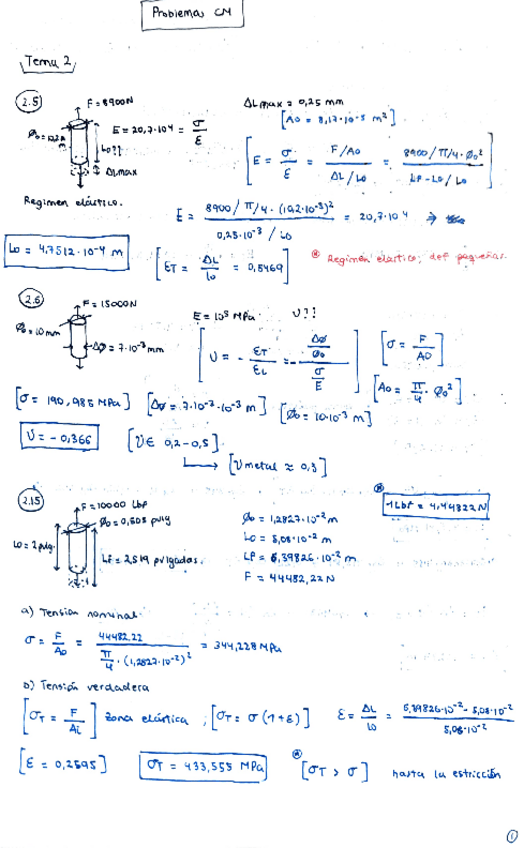 Problemas CM
Tema 2
2.5
F = 8900N
ΔLmax = 0,25 mm
[A0 = 8,17·10⁻⁵ m²]
E = 20,7·10⁴ = σ/ε
L0??
ΔLmax
[E = σ/ε = (F/A0)/(ΔL/L0) = (8900/π/4·Ø0²)/(LF-L0/L0)]
Regimen elástico.
E = (8900/π/4·(10,2·10⁻³)²)/(0,25·10⁻³/L0) = 20,7·10⁴ ⇒
L0 = 4,7512·10⁻⁴ m
[ET = ΔL/L0 = 0,5469]
* Regimen elástico, def pequeñas.
2.6
F = 15000N
Ø0 = 10mm
Δø = 7·10⁻³ mm
E = 10⁵ MPa.
υ??
[υ = - εT/εL = - (Δø/Ø0)/(σ/E)]
[σ = F/A0]
[A0 = π/4·Ø0²]
[σ = 190,985 MPa]
[Δø = 7·10⁻³·10⁻³ m]
[Ø0 = 10·10⁻³ m]
υ = -0,366
[υ ∈ 0,2-0,5]
[υmetal ≈ 0,3]
2.15
F = 10000 Lbf
Ø0 = 0,505 pulg
L0 = 2 pulg.
LF = 2,519 pulgadas.
Ø0 = 1,2827·10⁻² m
L0 = 5,08·10⁻² m
LF = 6,39826·10⁻² m
F = 44482,22 N
* 1Lbf = 4,44822N
a) Tensión nominal.
σ = F/A0 = 44482,22/(π/4·(1,2827·10⁻²)²) = 344,228 MPa
b) Tensión verdadera
[σT = F/Ai] zona elástica ; [σT = σ(1+ε)]
ε = ΔL/L0 = (6,39826·10⁻² - 5,08·10⁻²)/(5,08·10⁻²)
[ε = 0,2595]
σT = 433,555 MPa
* [σT > σ] hasta la estricción
1